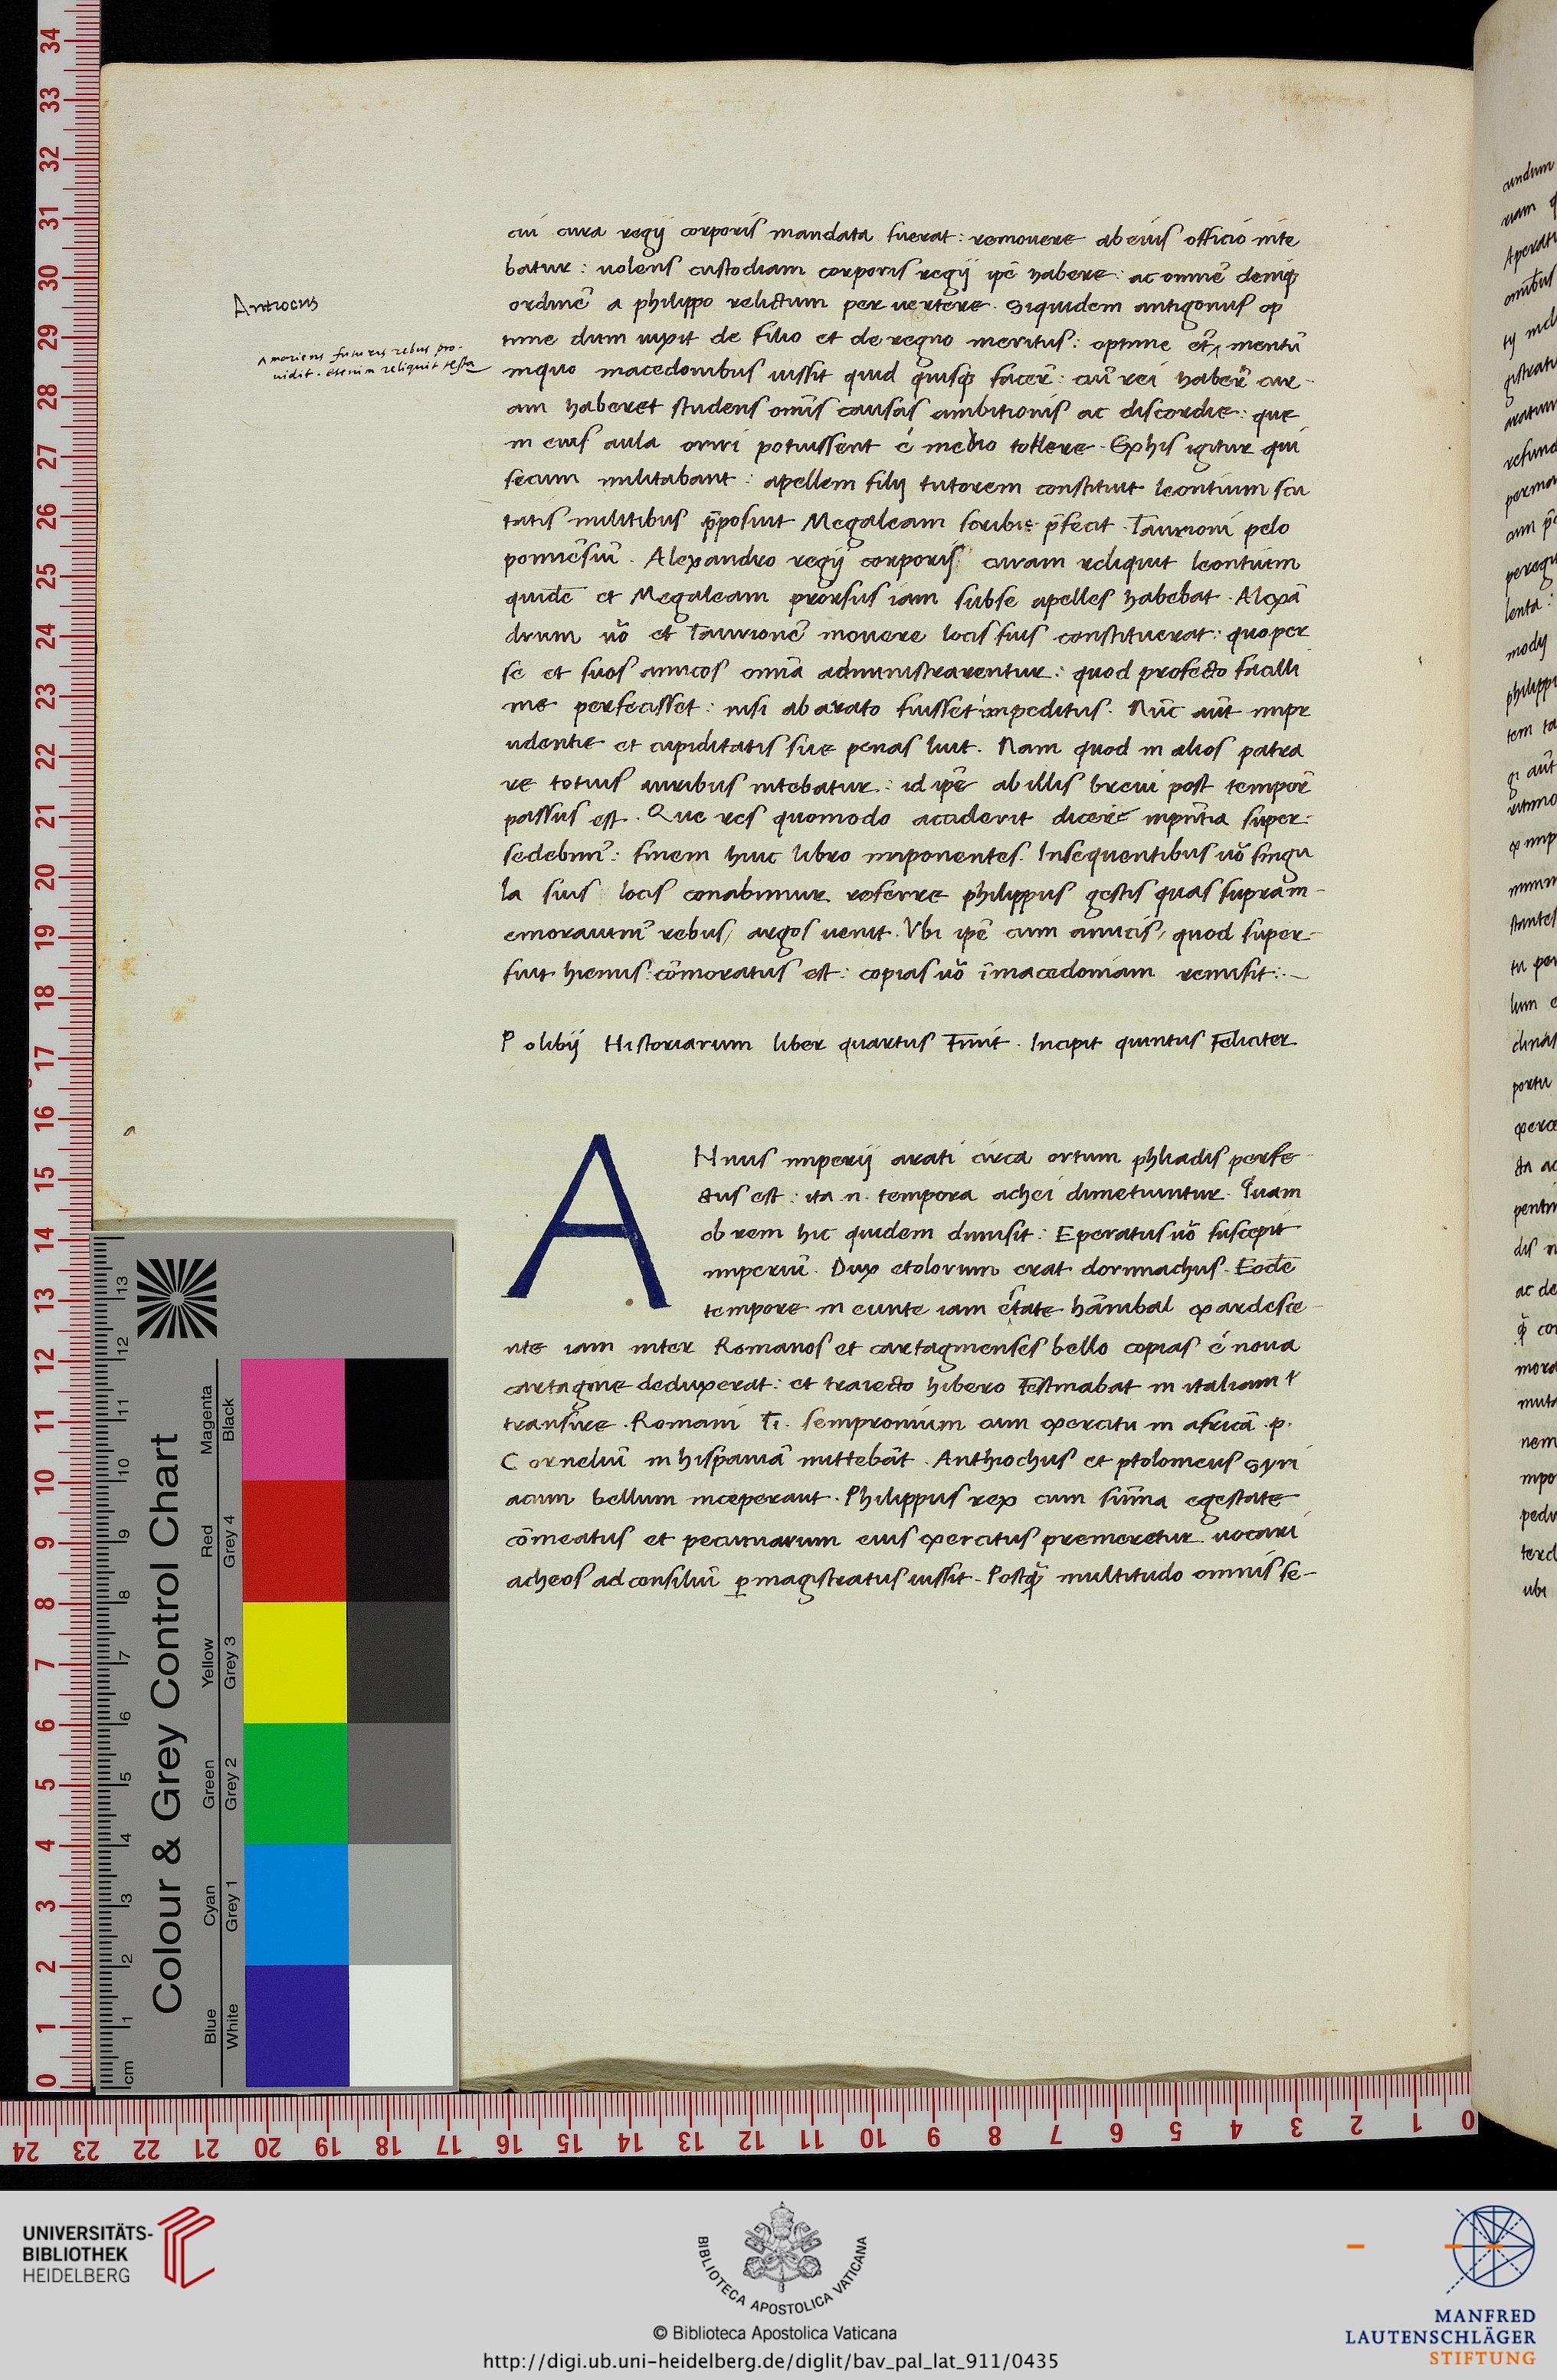 cui cura regij corporis mandata fuerat: remouere ab eius officio nite
batur: uolens custodiam corporis regij ip̄e habere: ac omnē deniqꝫ
ordinē a philippo relictum per uertere. Siquidem antigonus op
Antiocus
time dum uixit de filio et de regno meritus: optime et̄ mentū
moriens futuris rebus pro-
uidit. etenim reliquit testa
inquo macedonibus iussit quid quisqꝫ facer̄: cui rei haber̄ cur-
am haberet studens om̄s causas ambitionis ac discordie: que
in eius aula oriri potuissent é medio tollere. Ex his igitur qui
secum militabant: apellem filij tutorem constituit leontium scu
tatis militibus p̄posuit Megaleam scribis p̄fecit. Taurioni pelo
ponnēsiū. Alexandro regij corporis curam reliquit leontium
quidē et Megaleam prorsus iam subse apelles habebat. Alexā
drum uō et Taurionē mouere locis suis constituerat: quo per
se et suos amicos omīa administrarentur: quod profecto facilli
me perfecisset: nisi ab arato fuisset impeditus. Nūc aūt impr
udentie et cupiditatis sue penas luit. Nam quod in alios patra
re totius uiribus nitebatur: id ip̄e ab illis breui post tempor̄
passus est. Que res quomodo acciderit dicere inpn̄tia super:
sedebim̄: finem huic libro imponentes. Insequentibus uō singu
la suis locis conabimur referre philippus gestis quas supram-
emorauim̄ rebus, argos uenit. Vbi ip̄e cum amicis, quod super-
fuit hiemis: cōmoratus est: copias uō īmacedoniam remisit:
Polibij Historiarum liber quartus Finit. Incipit quintus Feliciter
A
Nnus imperij arati circa ortum phliadis perfe
ctus est: ita .n. tempora achei dimetiuntur. Quam
ob rem hic quidem dimisit: Eperatus uō suscepit
imperiū. Dux etolorum erat dorimachus. Eodē
tempore in eunte iam estate hānibal exardesce-
nte iam inter Romanos et cartaginenses bello copias é noua
cartagine deduxerat: et traiecto hibero festinabat in italiam t
transire. Romani Ti. sempronium cum exercitu in africā .p.
Corneliū in hispaniā mittebāt. Anthiochus et ptolomeus syri
acum bellum inceperant. Philippus rex cum sūma egestate
cōmeatus et pecuniarum eius exercitus premeretur uocari
acheos ad consiliū ꝑ magistratus iussit. Postq̄ multitudo omnis se-
cundum
riam
Aperati
om̄ibus
tij incl
gistratu
aratum
refuna
perma
cum p̄
peregr
lenta:
modij
philippi
tem ta
stantes
tu per
lum
clinas
portu
ac de
mora
muta
nem
impo
pedi
terci
ubi
34 33 32 31 30 29 28 27 26 25 24 23 22 21 20 19 18 17 16 15 14 13 12 11 10 9 8 7 6 5 4 3 2 1 0
Colour & Grey Control Chart
Magenta Black
Red Grey 4
Yellow Grey 3
Green Grey 2
Cyan Grey 1
Blue White
13 12 11 10 9 8 7 6 5 4 3 2 1 cm
24 23 22 21 20 19 18 17 16 15 14 13 12 11 10 9 8 7 6 5 4 3 2 1 0
UNIVERSITÄTS-
BIBLIOTHEK
HEIDELBERG
BIBLIOTECA APOSTOLICA VATICANA
© Biblioteca Apostolica Vaticana
http://digi.ub.uni-heidelberg.de/diglit/bav_pal_lat_911/0435
MANFRED
LAUTENSCHLÄGER
STIFTUNG